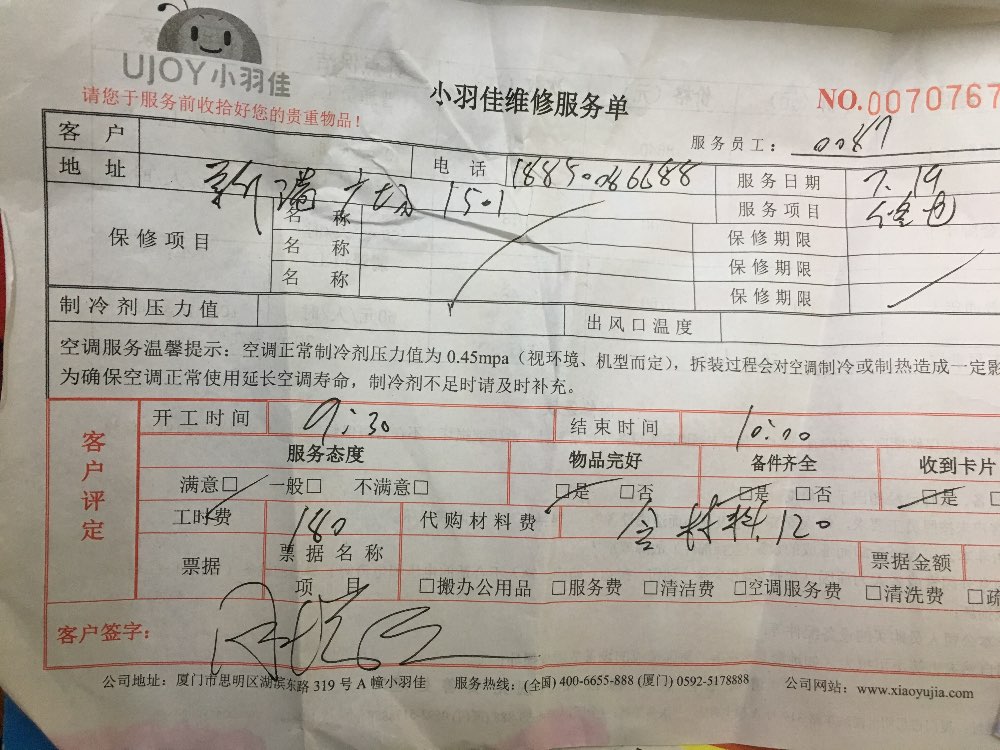 UJOY小羽佳
请您于服务前收拾好您的贵重物品！
小羽佳维修服务单
NO.0070767
服务员工： 0087
客 户
电 话
服务日期 7.19
地 址 15.1
服务项目
保修项目
名 称
保修期限
名 称
保修期限
名 称
保修期限
制冷剂压力值
出风口温度
空调服务温馨提示：空调正常制冷剂压力值为 0.45mpa（视环境、机型而定），拆装过程会对空调制冷或制热造成一定影
为确保空调正常使用延长空调寿命，制冷剂不足时请及时补充。
客户评定
开工时间 9:30
结束时间 10:00
服务态度
物品完好
备件齐全
收到卡片
满意□ 一般□ 不满意□
□是 □否
□是 □否
□是
工时费 180
代购材料费 含材料120
票据
票据名称
票据金额
项 目
□搬办公用品 □服务费 □清洁费 □空调服务费 □清洗费 □疏
客户签字：
公司地址：厦门市思明区湖滨东路 319 号 A 幢小羽佳 服务热线：(全国) 400-6655-888 (厦门) 0592-5178888 公司网站：www.xiaoyujia.com